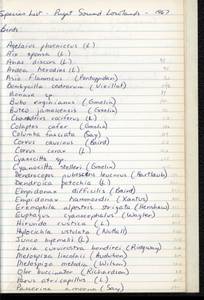 Species List - Puget Sound Lowlands - 1967
Birds
Agelaius phoeniceus (L)
Aix sponsa (L)
Anas discors (L)
Ardea herodias (L)
Asio flammeus (Pontoppidan)
Bombycilla cedrorum (Vieillot)
Bonasa sp.
Bubo virginianus (Gmelin)
Buteo jamaicensis (Gmelin)
Charadrius vociferus (L)
Colaptes cafer (Gmelin)
Columba fasciata (Say)
Corvus caurinus (Baird)
Corvus corax (L)
Cyanocitta sp.
Cyanocitta stelleri (Gmelin)
Dendrocopus pubescens leucurus (Hartlaub)
Dendroica petechia (L)
Empidonax difficilis (Baird)
Empidonax hammondii (Xantus)
Eremophila alpestris strigata (Henshaw)
Euphagus cyanocephalus (Wagler)
Hirundo rustica (L)
Hylocichla ustulata (Nuttall)
Junco hyemalis (L)
Loxia curvirostra bendirei (Ridgway)
Melospiza lincolnii (Audubon)
Melospiza melodia (Wilson)
Olor buccinator (Richardson)
Parus atricapillus (L)
Passerina amoena (Say)